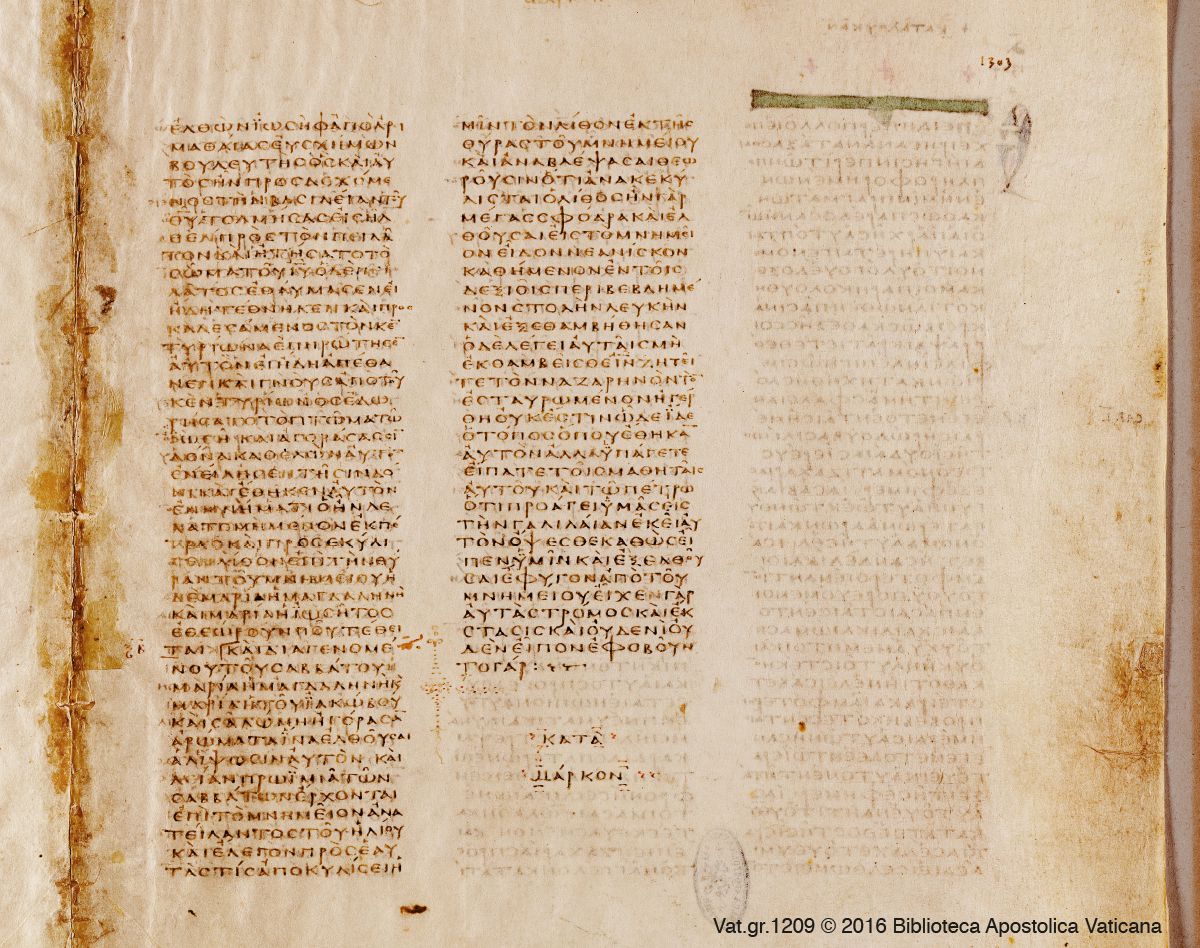 ΕΛΘΩΝΪΩΣΗΦΑΠΟΑΡΙ
ΜΑΘΑΙΑΣΕΥΣΧΗΜΩΝ
ΒΟΥΛΕΥΤΗΣΟΣΚΑΙΑΥ
ΤΟΣΗΝΠΡΟΣΔΕΧΟΜΕ
ΝΟΣΤΗΝΒΑΣΙΛΕΙΑΝΤΟΥ
ΘΥΤΟΛΜΗΣΑΣΕΙΣΗΛ
ΘΕΝΠΡΟΣΤΟΝΠΕΙΛΑ
ΤΟΝΚΑΙΗΤΗΣΑΤΟΤΟ
ΣΩΜΑΤΟΥΙΥΟΔΕΠΕΙ
ΛΑΤΟΣΕΘΑΥΜΑΣΕΝΕΙ
ΗΔΗΤΕΘΝΗΚΕΝΚΑΙΠΡΟΣ
ΚΑΛΕΣΑΜΕΝΟΣΤΟΝΚΕ
ΤΥΡΙΩΝΑΕΠΗΡΩΤΗΣΕ
ΑΥΤΟΝΕΙΗΔΗΑΠΕΘΑ
ΝΕΝΚΑΙΓΝΟΥΣΑΠΟΤΟΥ
ΚΕΝΤΥΡΙΩΝΟΣΕΔΩ
ΡΗΣΑΤΟΤΟΠΤΩΜΑΤΩ
ΪΩΣΗΚΑΙΑΓΟΡΑΣΑΣΣΙ
ΔΟΝΑΚΑΘΕΛΩΝΑΥΤΟ
ΕΝΕΙΛΗΣΕΝΤΗΣΙΝΔΟ
ΝΙΚΑΙΕΘΗΚΕΝΑΥΤΟΝ
ΕΝΜΝΗΜΑΤΙΟΗΝΛΕ
ΛΑΤΟΜΗΜΕΝΟΝΕΚΠΕ
ΤΡΑΣΚΑΙΠΡΟΣΕΚΥΛΙ
ΣΕΝΛΙΘΟΝΕΠΙΤΗΝΘΥ
ΡΑΝΤΟΥΜΝΗΜΕΙΟΥΗ
ΔΕΜΑΡΙΑΗΜΑΓΔΑΛΗΝΗ
ΚΑΙΜΑΡΙΑΗΪΩΣΗΤΟΣ
ΕΘΕΩΡΟΥΝΠΟΥΤΕΘΕΙ
ΤΑΙΚΑΙΔΙΑΓΕΝΟΜΕ
ΝΟΥΤΟΥΣΑΒΒΑΤΟΥΗ
ΜΑΡΙΑΗΜΑΓΔΑΛΗΝΗΚΑΙ
ΜΑΡΙΑΗΤΟΥΪΑΚΩΒΟΥ
ΚΑΙΣΑΛΩΜΗΗΓΟΡΑΣΑ
ΑΡΩΜΑΤΑΪΝΑΕΛΘΟΥΣΑΙ
ΑΛΙΨΩΣΙΝΑΥΤΟΝΚΑΙ
ΛΙΑΝΠΡΩΪΜΙΑΤΩΝ
ΣΑΒΒΑΤΩΝΕΡΧΟΝΤΑΙ
ΕΠΙΤΟΜΝΗΜΕΙΟΝΑΝΑ
ΤΕΙΛΑΝΤΟΣΤΟΥΗΛΙΟΥ
ΚΑΙΕΛΕΓΟΝΠΡΟΣΕΑΥ
ΤΑΣΤΙΣΑΠΟΚΥΛΙΣΕΙΗ
ΜΙΝΤΟΝΛΙΘΟΝΕΚΤΗΣ
ΘΥΡΑΣΤΟΥΜΝΗΜΕΙΟΥ
ΚΑΙΑΝΑΒΛΕΨΑΣΑΙΘΕΩ
ΡΟΥΣΙΝΟΤΙΑΝΑΚΕΚΥ
ΛΙΣΤΑΙΟΛΙΘΟΣΗΝΓΑΡ
ΜΕΓΑΣΣΦΟΔΡΑΚΑΙΕΛ
ΘΟΥΣΑΙΕΙΣΤΟΜΝΗΜΕΙ
ΟΝΕΙΔΟΝΝΕΑΝΙΣΚΟΝ
ΚΑΘΗΜΕΝΟΝΕΝΤΟΙΣ
ΔΕΞΙΟΙΣΠΕΡΙΒΕΒΛΗΜΕ
ΝΟΝΣΤΟΛΗΝΛΕΥΚΗΝ
ΚΑΙΕΞΕΘΑΜΒΗΘΗΣΑΝ
ΟΔΕΛΕΓΕΙΑΥΤΑΙΣΜΗ
ΕΚΘΑΜΒΕΙΣΘΕΙΝΖΗΤΕΙ
ΤΕΤΟΝΝΑΖΑΡΗΝΟΝΤΟ
ΕΣΤΑΥΡΩΜΕΝΟΝΗΓΕΡ
ΘΗΟΥΚΕΣΤΙΝΩΔΕΙΔΕ
ΟΤΟΠΟΣΟΠΟΥΕΘΗΚΑ
ΑΥΤΟΝΑΛΛΑΥΠΑΓΕΤΕ
ΕΙΠΑΤΕΤΟΙΣΜΑΘΗΤΑΙΣ
ΑΥΤΟΥΚΑΙΤΩΠΕΤΡΩ
ΟΤΙΠΡΟΑΓΕΙΥΜΑΣΕΙΣ
ΤΗΝΓΑΛΙΛΑΙΑΝΕΚΕΙΑΥ
ΤΟΝΟΨΕΣΘΕΚΑΘΩΣΕΙ
ΠΕΝΥΜΙΝΚΑΙΕΞΕΛΘΟΥ
ΣΑΙΕΦΥΓΟΝΑΠΟΤΟΥ
ΜΝΗΜΕΙΟΥΕΙΧΕΝΓΑΡ
ΑΥΤΑΣΤΡΟΜΟΣΚΑΙΕΚ
ΣΤΑΣΙΣΚΑΙΟΥΔΕΝΙΟΥ
ΔΕΝΕΙΠΟΝΕΦΟΒΟΥΝ
ΤΟΓΑΡ:
ΚΑΤΑ
ΜΑΡΚΟΝ
1303
Vat.gr.1209 © 2016 Biblioteca Apostolica Vaticana